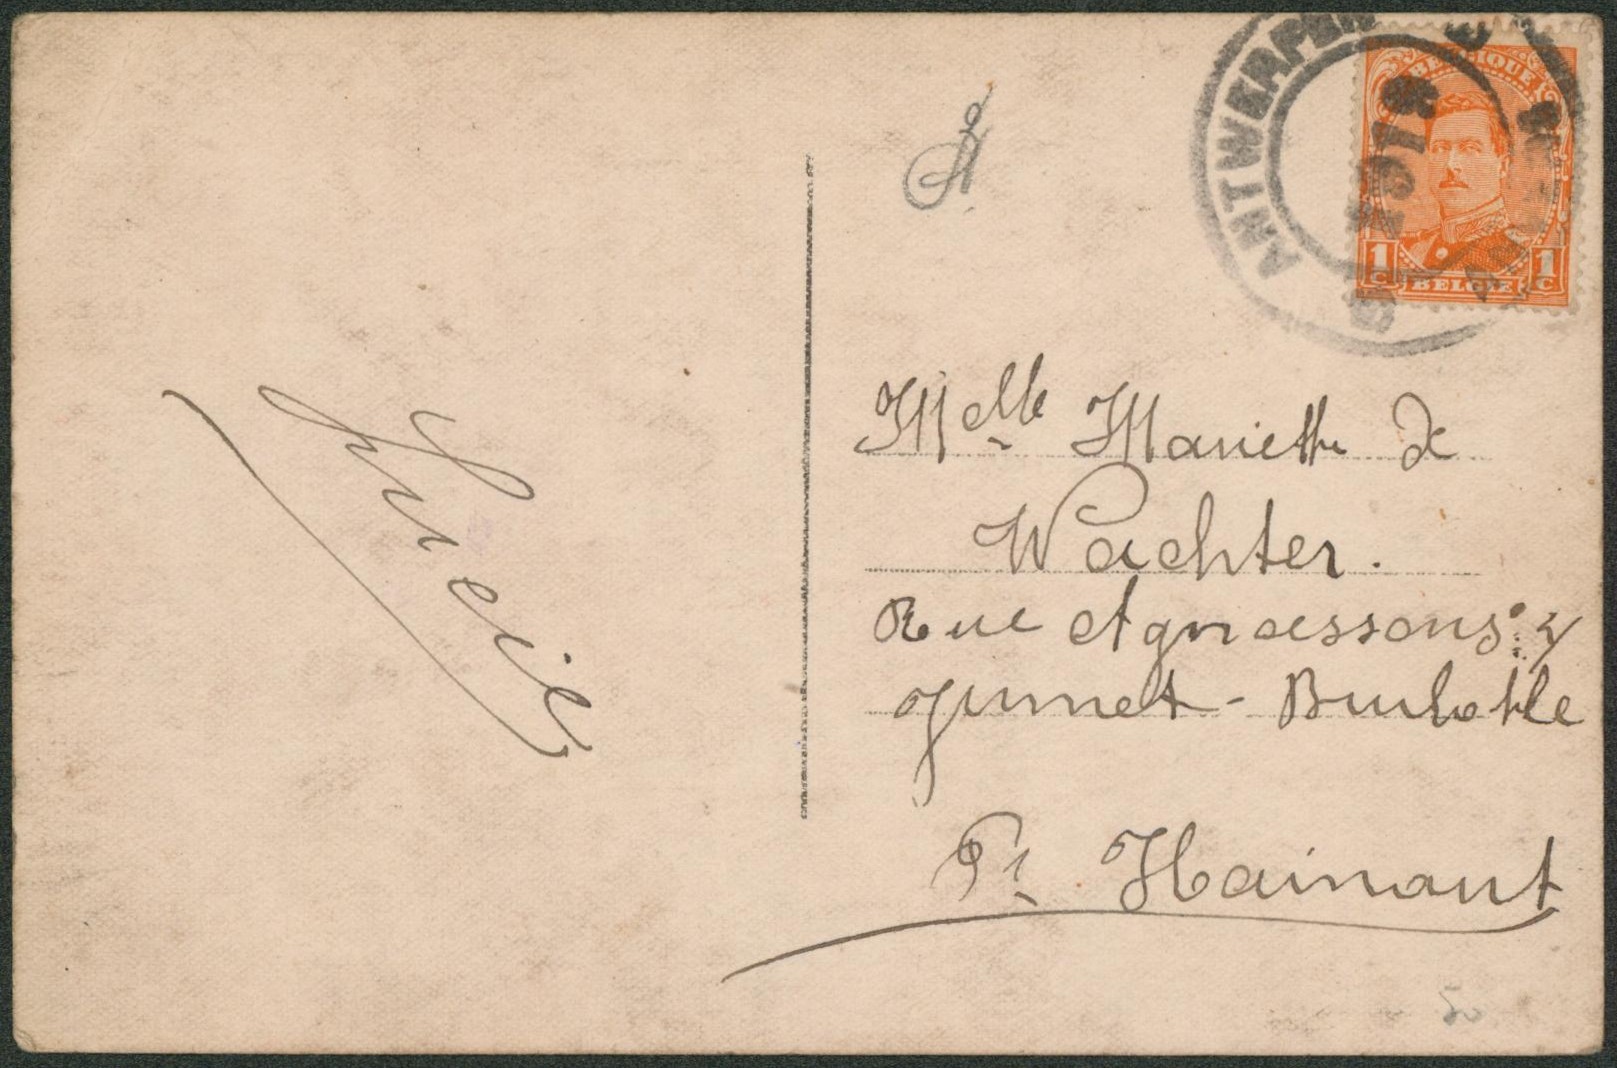 ANTWERPEN
1918
BELGIQUE
1 C 1 C
BELGIE
Melle Mariette De
Wachter.
Rue Agnaessons 4
Jumet - Brulotte
Pr Hainaut
50